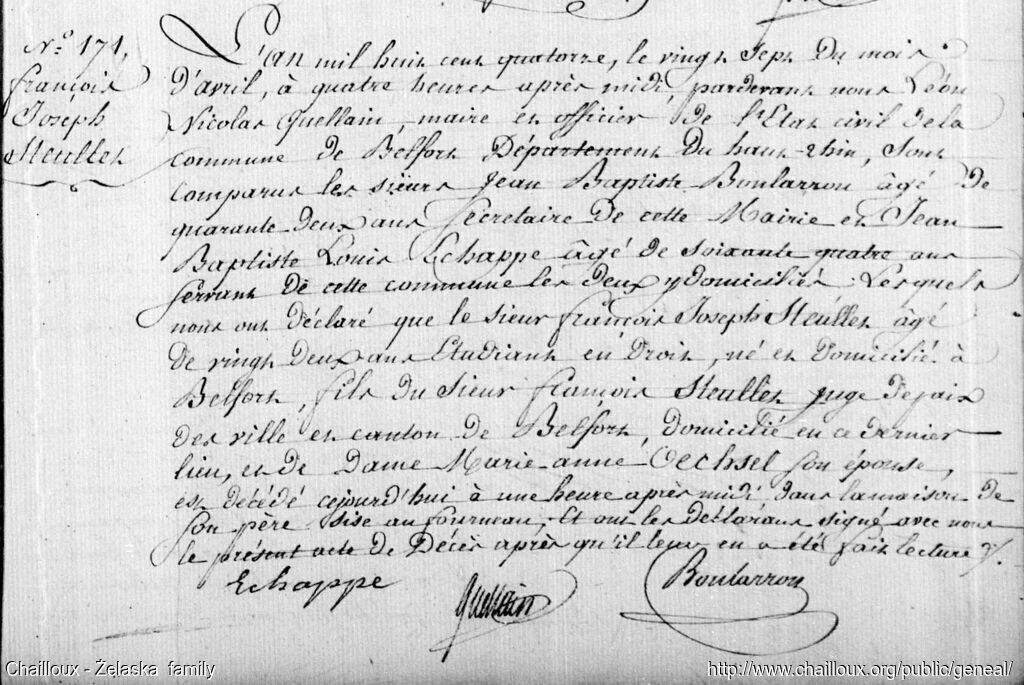 N.o 171.
françois
Joseph
Steullet
L'an mil huit cent quatorze, le vingt sept du mois
D'avril, à quatre heures après midi, pardevant nous Léon
Nicolas Quellain, maire et officier de l'Etat civil dela
commune de Belfort Département du haut-rhin, sont
comparus les sieurs Jean Baptiste Boularron âgé de
quarante deux ans Secretaire de cette Mairie et Jean
Baptiste Louis Echappe âgé de soixante quatre ans
servant de cette commune les deux y domiciliés. Lesquels
nous ont déclaré que le sieur françois Joseph Steullet âgé
de vingt deux ans Etudiant en Droit, né et domicilié à
Belfort, fils du sieur françois Steullet juge depaix
des ville et canton de Belfort, domicilié en ce dernier
lieu, et de Dame Marie-anne Oechsel son épouse,
est décédé cejourd'hui à une heure après midi dans lamaison de
son père sise au fourneau, Et ont les déclarans signé avec nous
le présent acte de Décès après qu'il leur en a été fait lecture ./.
Echappe
Quellain
Boularron
Chailloux - Żelaska family
http://www.chailloux.org/public/geneal/